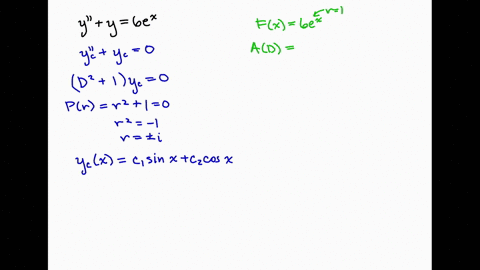 y'' + y = 6eˣ
y_c'' + y_c = 0
(D² + 1) y_c = 0
P(r) = r² + 1 = 0
r² = -1
r = ±i
y_c(x) = c₁ sin x + c₂ cos x
F(x) = 6eˣ ← r=1
A(D) =